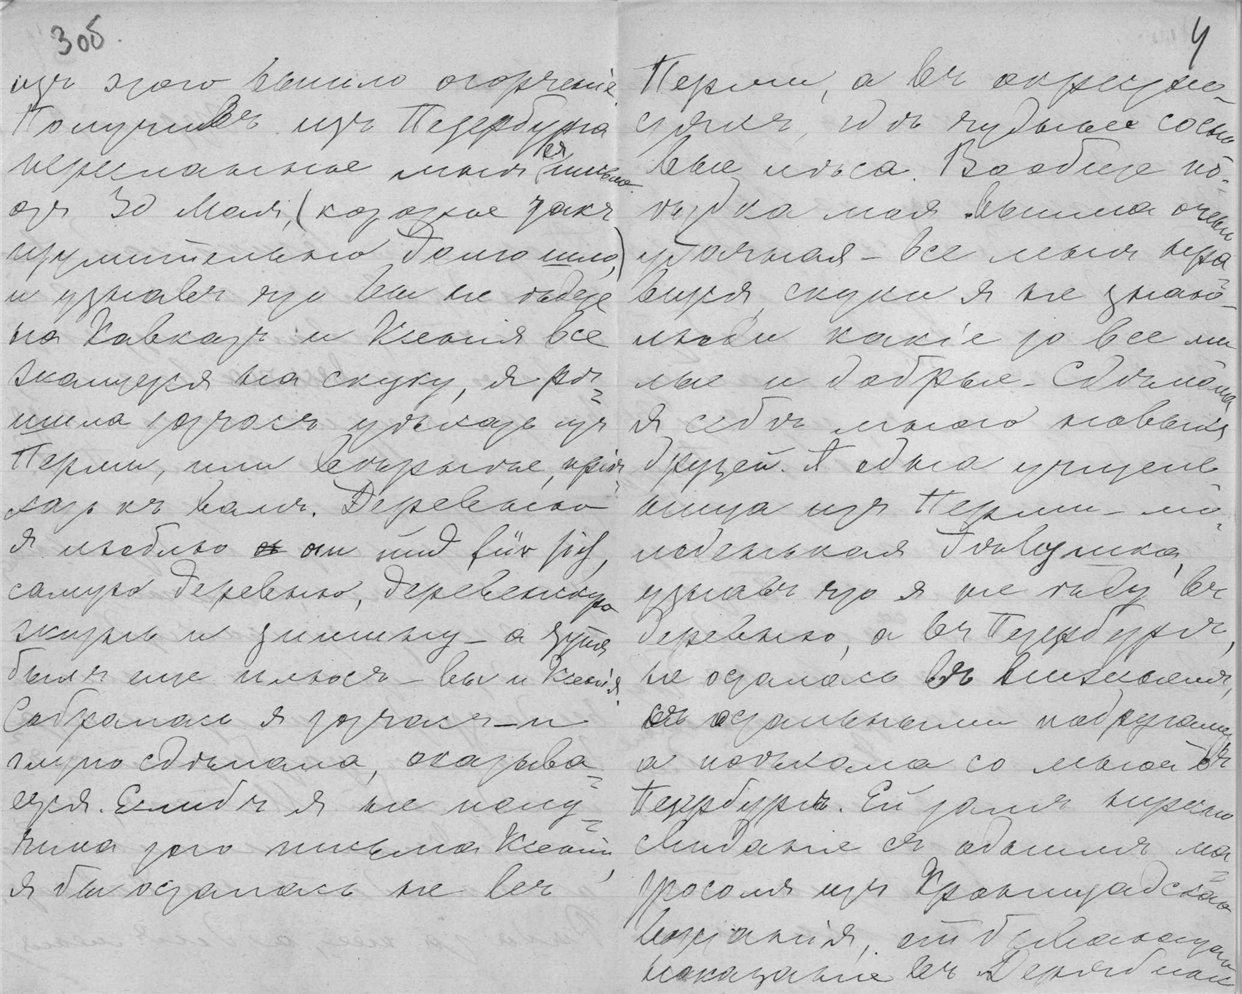 3 об.
изъ этого вышло огорченіе.
Получивъ изъ Петербурга
пересланное мнѣ ея письмо
отъ 30 Мая, (которое такъ
изумительно долго шло,)
и узнавъ что вы не ѣдете
на Кавказъ и Ксенія все
жалуется на скуку, я рѣ=
шила тотчасъ уѣхать изъ
Перми, или вѣрнѣе, пріѣ=
хать къ вамъ. Деревню
я люблю an und für sich,
самую деревню, деревенскую
жизнь и тишину – а тутъ
былъ еще плюсъ – вы и Ксенія
Собралась я тотчасъ – и
глупо сдѣлала, оказыва=
ется. Еслибъ я не полу=
чила этого письма Ксеніи,
я бы осталась не въ
4
Перми, а въ окрестно=
стяхъ, гдѣ чудные сосно
вые лѣса. Вообще по=
ѣздка моя вышла очень
удачная – все мнѣ нра=
вится, скуки я не знаю –
люди какіе то все ми
лые и добрые – Сдѣлала
я себѣ много новыхъ
друзей. А одна ученi
ница изъ Перми – мо=
лоденькая дѣвушка,
узнавъ что я не ѣду въ
деревню, а въ Петербургъ,
не осталась въ
съ остальными подругами
а поѣхала со мной въ
Петербургъ. Ей тамъ нужно
свиданіе съ однимъ ма=
тросомъ изъ Кронштадскаго
возстанія, отбывающимъ
наказаніе въ